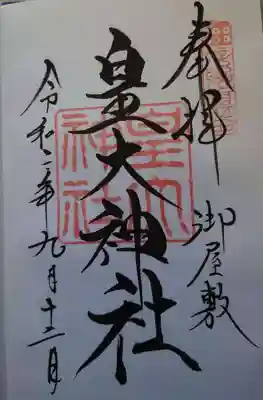 奉拝
御屋敷
皇大神社
皇大
神社
令和二年九月十二日